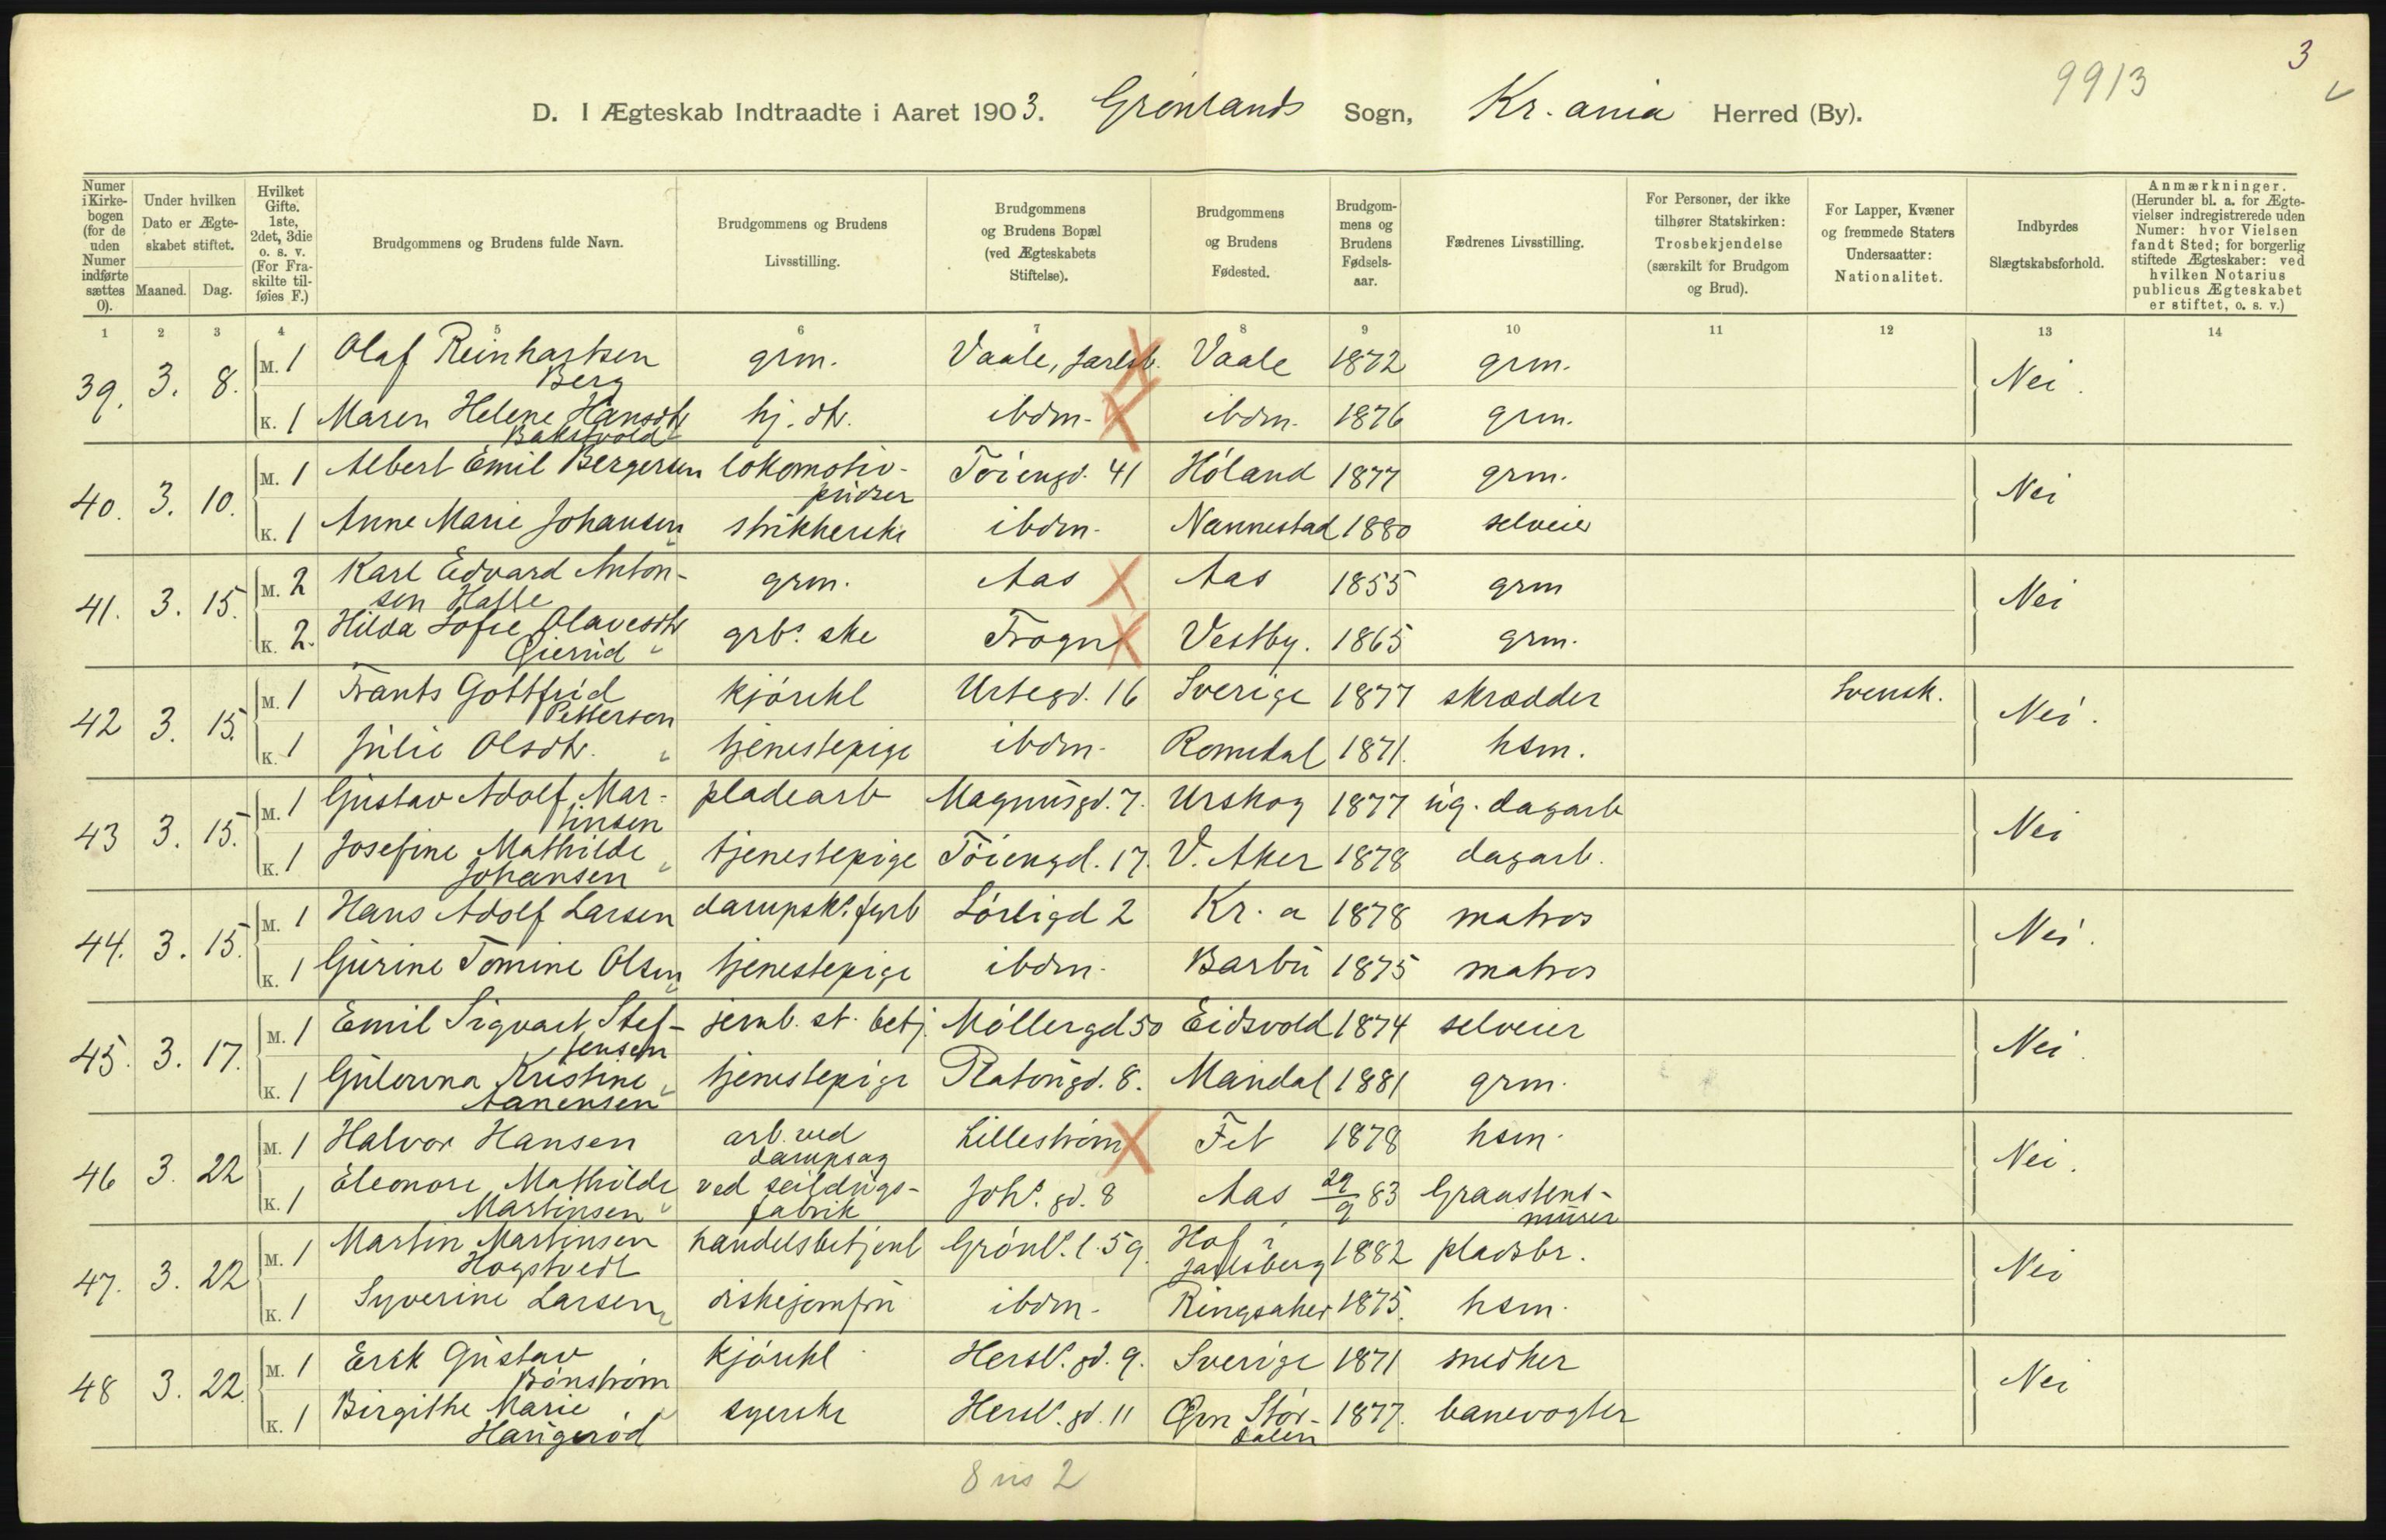 3
9913
D. I Ægteskab Indtraadte i Aaret 1903. Grønlands Sogn, Kr.ania Herred (By).
Numer i Kirkebogen (for de uden Numer indførte sættes 0).
Under hvilken Dato er Ægteskabet stiftet.
Maaned. Dag.
Hvilket Gifte. 1ste, 2det, 3die o. s. v. (For Fraskilte tilføies F.)
Brudgommens og Brudens fulde Navn.
Brudgommens og Brudens Livsstilling.
Brudgommens og Brudens Bopæl (ved Ægteskabets Stiftelse).
Brudgommens og Brudens Fødested.
Brudgommens og Brudens Fødselsaar.
Fædrenes Livsstilling.
For Personer, der ikke tilhører Statskirken: Trosbekjendelse (særskilt for Brudgom og Brud).
For Lapper, Kvæner og fremmede Staters Undersaatter: Nationalitet.
Indbyrdes Slægtskabsforhold.
Anmærkninger. (Herunder bl. a. for Ægtevielser indregistrerede uden Numer: hvor Vielsen fandt Sted; for borgerlig stiftede Ægteskaber: ved hvilken Notarius publicus Ægteskabet er stiftet, o. s. v.)
1 2 3 4 5 6 7 8 9 10 11 12 13 14
39. 3. 8. M. 1 Olaf Reinhartsen Berg grm. Vaale, Jarlsb. Vaale 1872 grm. Nei.
K. 1 Maren Helene Hansdtr. hj. dtr. ibdm. ibdm. 1876 grm.
40. 3. 10. M. 1 Albert Emil Bergersen lokomotivpudser Töiengd. 41 Höland 1877 grm. Nei
K. 1 Anne Marie Johansen strikkerske ibdm. Nannestad 1880 selveier
41. 3. 15. M. 2 Karl Edvard Antonsen Halle grm. Aas Aas 1855 grm Nei
K. 2. Hilda Sofie Olavesdtr. Gierud grbs. ske Frogn Vestby. 1865 grm.
42 3. 15. M. 1 Frants Gottfrid Pettersen kjörekl Urtegd. 16 Sverige 1877 skrædder Svensk. Nei.
K. 1 Julie Olsdtr. tjenestepige ibdm. Romedal 1871. hsm.
43 3. 15. M. 1 Gustav Adolf Martinsen pladearb Magnusgd. 7. Urskog 1877 ug. dagarb Nei
K. 1 Josefine Mathilde Johansen tjenestepige Töiengd. 17. V. Aker 1878 dagarb.
44. 3. 15. M. 1 Hans Adolf Larsen dampsk. fyrb Sörligd 2 Kr. a 1878 matros Nei.
K. 1 Gurine Tomine Olsen tjenestepige ibdm. Barbu 1875 matros
45. 3. 17. M. 1 Emil Sigvart Steffensen jernb. st. betj. Möllergd 50 Eidsvold 1874 selveier Nei.
K. 1 Gulovna Kristine Aanensen tjenestepige Platougd. 8. Mandal 1881 grm.
46 3. 22 M. 1 Halvor Hansen arb. ved dampsag Lilleström Fet 1878 hsm. Nei.
K. 1 Eleonore Mathilde Martinsen ved seildugsfabrik Johs. gd. 8 Aas 29/9 83 Graastensmurer
47. 3. 22 M. 1 Martin Martinsen Hogstvedt handelsbetjent Grönls. l. 59. Hof i Jarlsberg 1882 pladsbr. Nei
K. 1 Syverine Larsen diskejomfru ibdm. Ringsaker 1875. hsm.
48 3. 22. M. 1 Erik Gustav Bönström kjörekl Hersls. gd. 9. Sverige 1871 snedker Nei
K. 1 Birgithe Marie Haugeröd syerske Hersls. gd. 11 Övre Stördalen 1877. banevogter